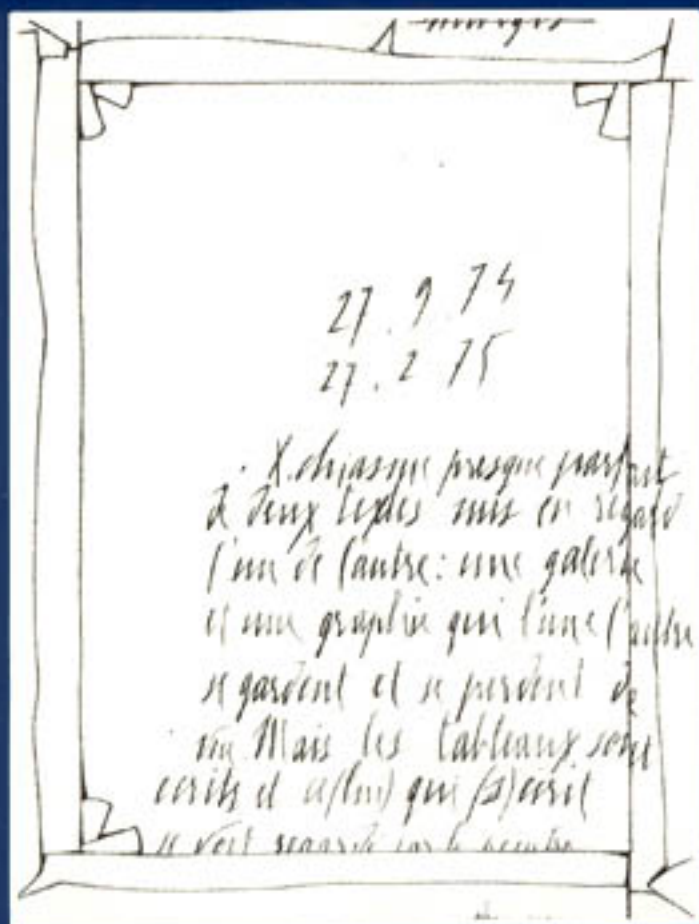 27.9 74
27.2 75
. X. chiasme presque parfait
de deux textes mis en regard
l'un de l'autre: une galerie
et une graphie qui l'une l'autre
se gardent et se perdent de
vue Mais les tableaux sont
écrits et ce(lui) qui (s)écrit
se voit regardé par le peintre